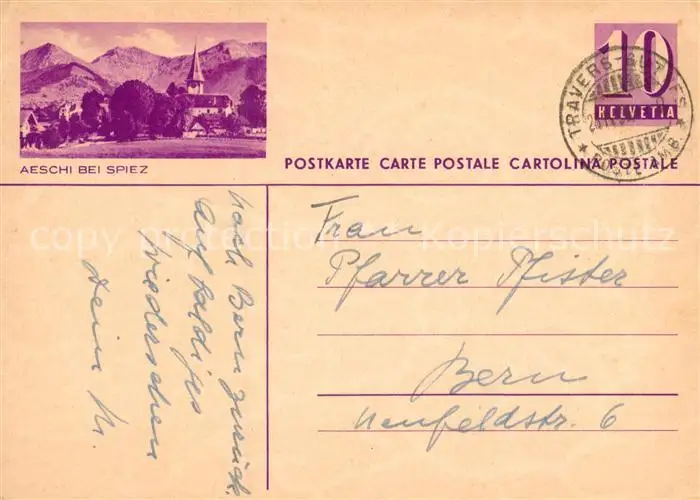 10
HELVETIA
TRAVERS-BUTTES
AESCHI BEI SPIEZ
POSTKARTE CARTE POSTALE CARTOLINA POSTALE
nach Bern zurück.
Auf baldiges
Wiedersehen
Dein
Frau
Pfarrer Pfister
Bern
Neufeldstr. 6
copy protection
Kopierschutz